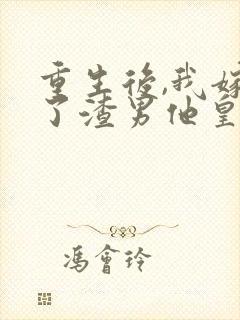 重生後,我嫁
了渣男他皇
馮會玲